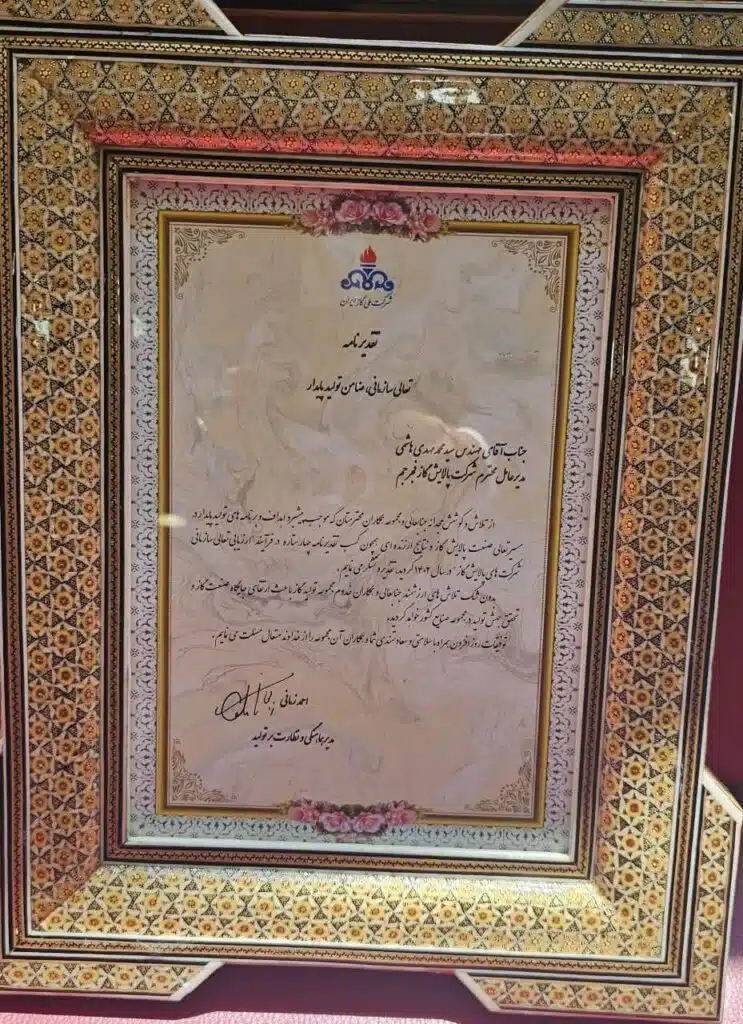 شرکت ملی گاز ایران
تقدیرنامه
تعالی سازمانی، ضامن تولید پایدار
جناب آقای مهندس سید محمد مهدی هاشمی
مدیرعامل محترم شرکت پالایش گاز فجر جم
از تلاش و کوشش مجدانه جنابعالی و مجموعه همکاران محترمتان که موجب پیشبرد اهداف و برنامه های تولید پایدار در
مسیر تعالی صنعت پالایش گاز و نتایج ارزنده ای همچون کسب تقدیرنامه چهار ستاره در فرآیند "ارزیابی تعالی سازمانی
شرکت های پالایش گاز" در سال ۱۴۰۲ گردید، تقدیر و تشکر می نمایم.
بدون شک تلاش های ارزشمند جنابعالی و همکاران خدوم مجموعه تولید گاز باعث ارتقای جایگاه صنعت گاز و
تحقق جهش تولید در مجموعه صنایع کشور خواهد گردید.
توفیقات روزافزون همراه با سلامتی و سعادتمندی شما و همکاران آن مجموعه را از خداوند متعال مسئلت می نمایم.
احمد زمانی
مدیر هماهنگی و نظارت بر تولید